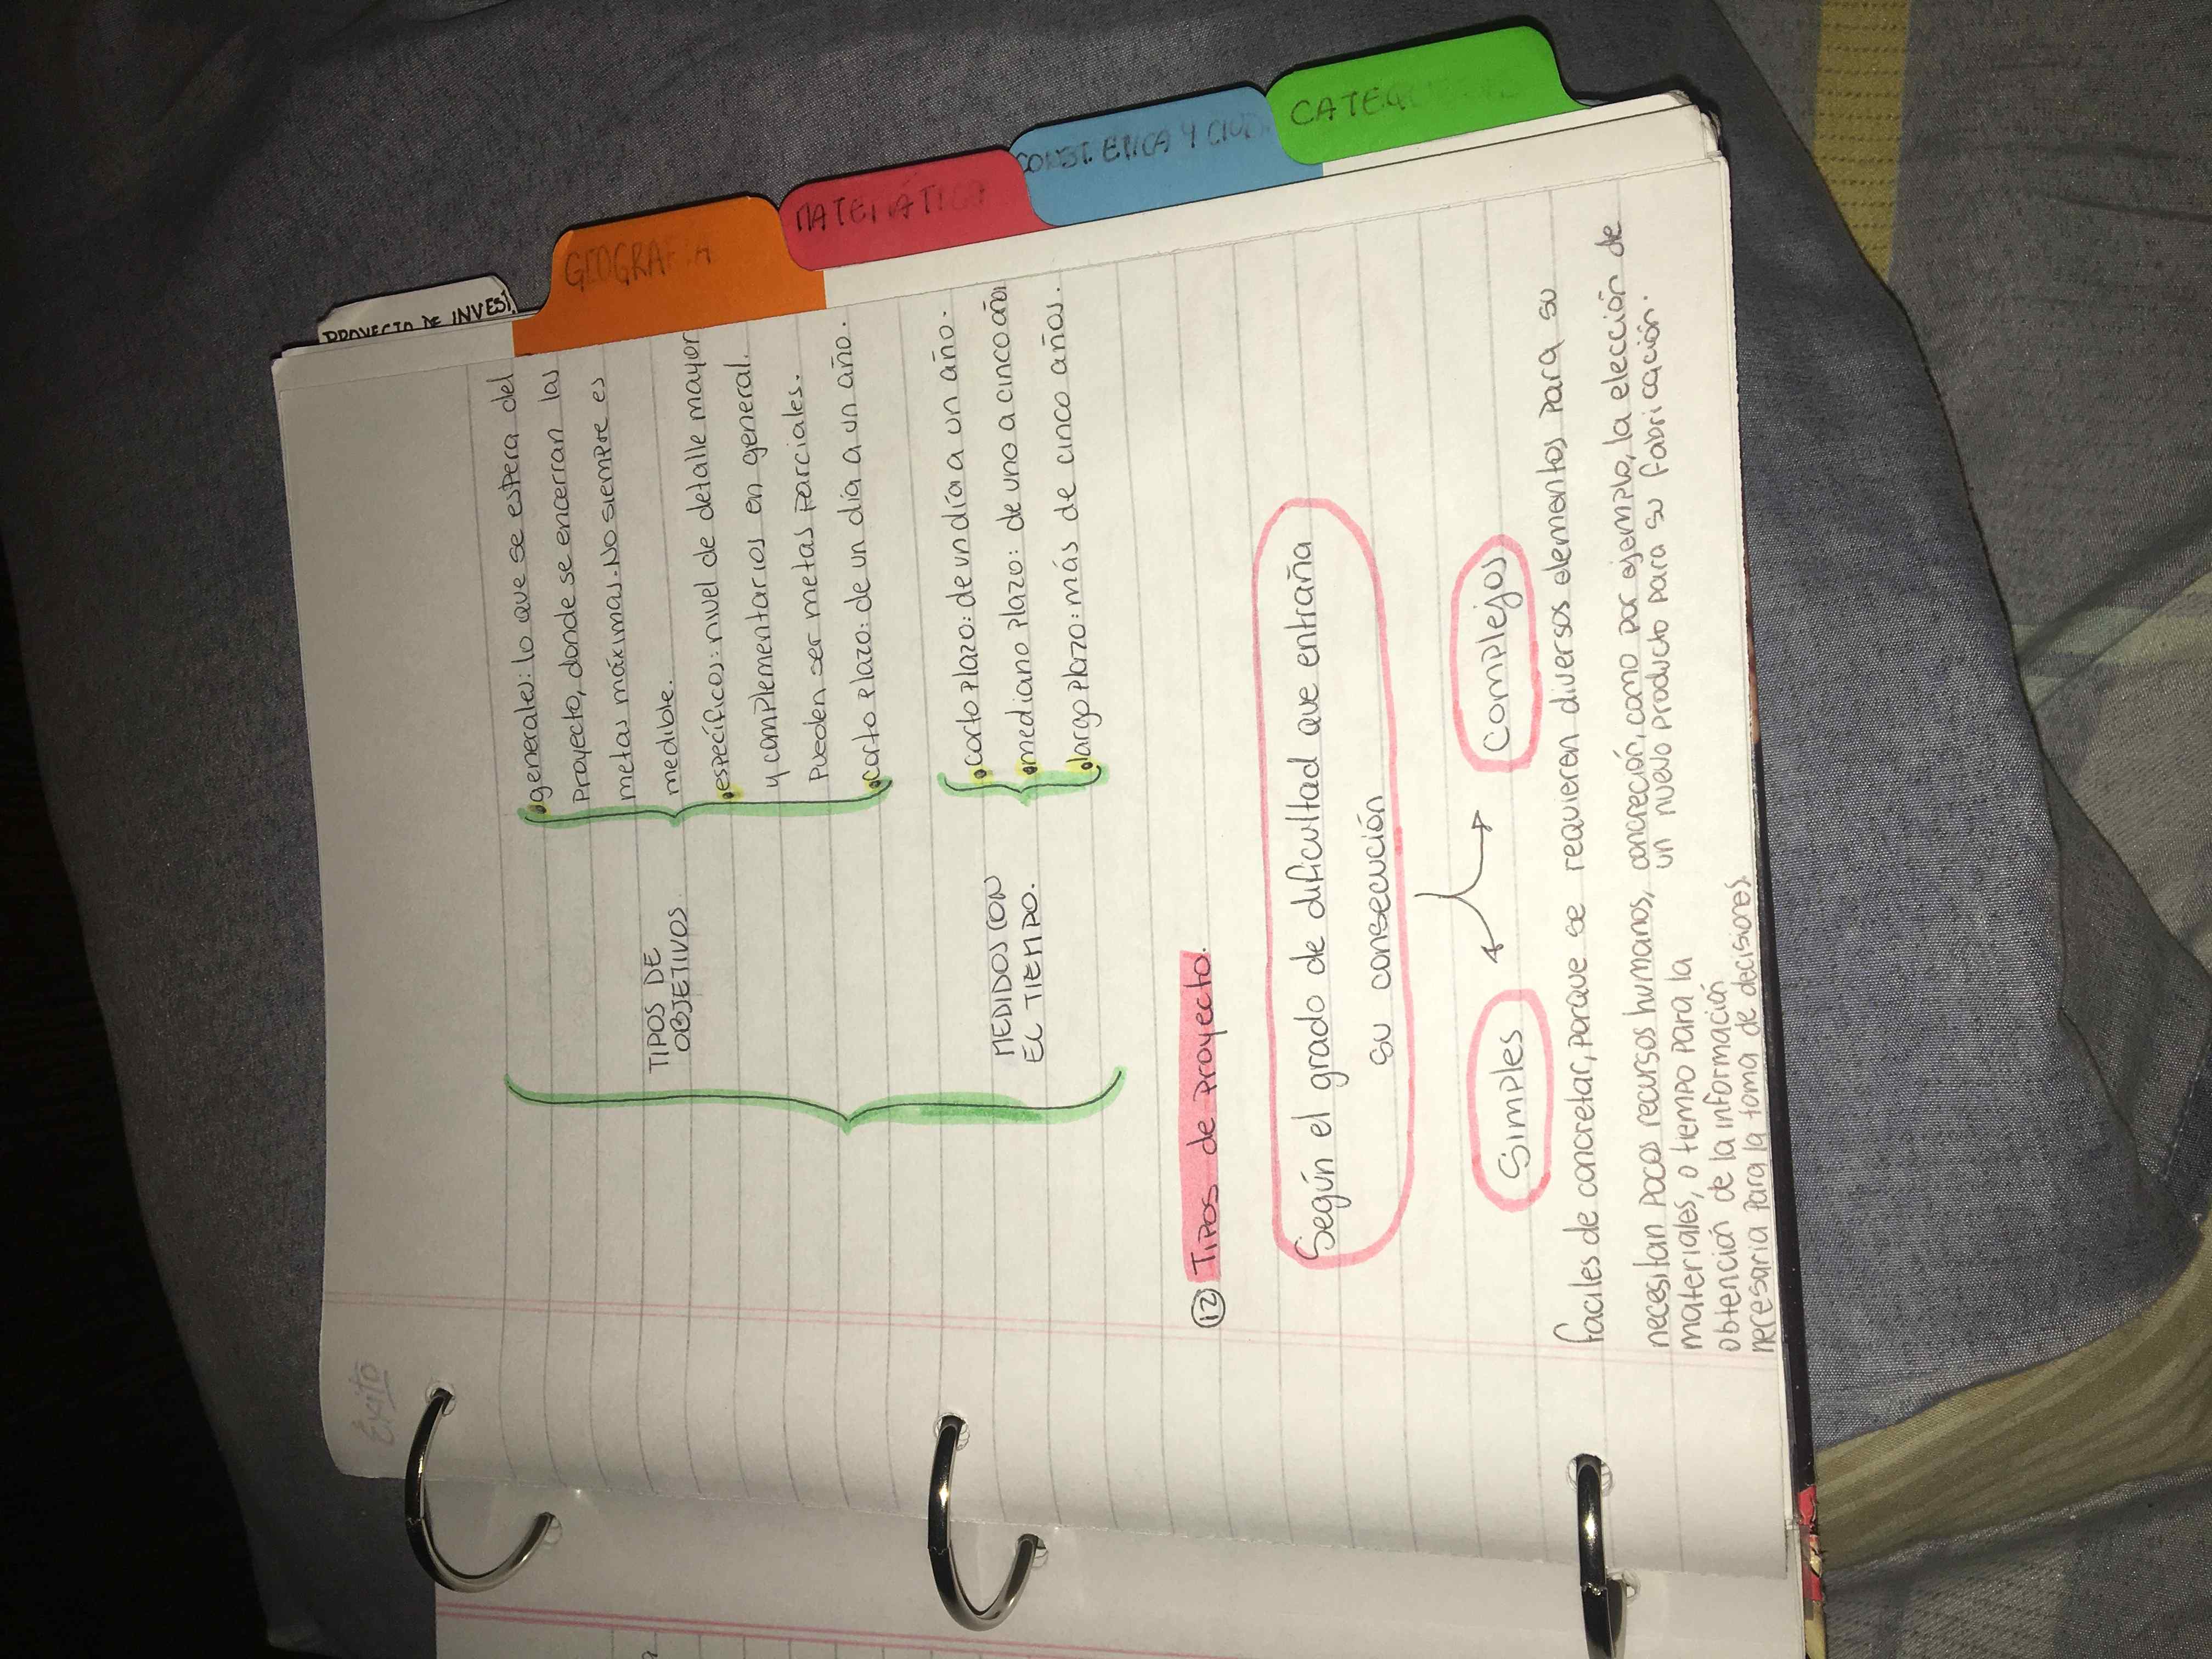 Éxito
generales: lo que se espera del
Proyecto, donde se encerran las
metas máximas-No siempre es
medible.
específicos: nivel de detalle mayor
y complementarios en general.
Pueden ser metas parciales.
corto plazo: de un día a un año.
TIPOS DE
OBJETIVOS
corto plazo: de un día a un año.
mediano plazo: de uno a cinco año
largo plazo: más de cinco años.
MEDIDOS CON
EL TIEMPO.
12 Tipos de proyecto.
Según el grado de dificultad que entraña
su consecución
Simples
Complejos
faciles de concretar, porque se
necesitan pocos recursos humanos,
materiales, o tiempo para la
obtención de la información
necesaria para la toma de decisiones
requieren diversos elementos para su
concreción, como por ejemplo, la elección de
un nuevo producto para su fabricación.
PROYECTO DE INVEST.
GEOGRAFIA
MATEMÁTICA
CONST. ETICA Y CIUD